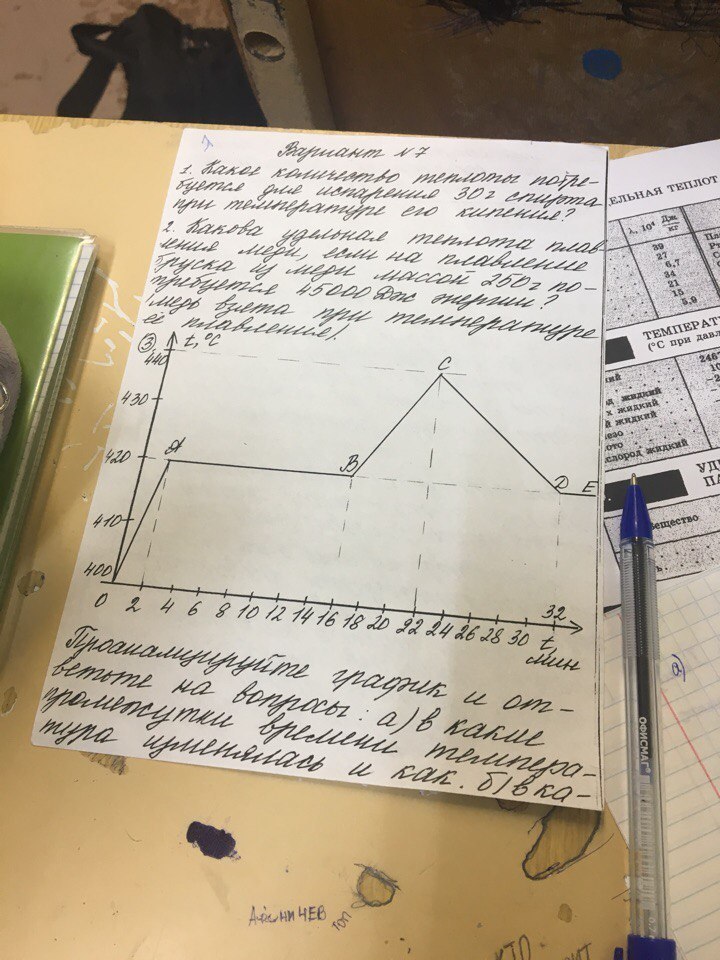 Вариант №7
1. Какое количество теплоты потре-
буется для испарения 30г спирта
при температуре его кипения?
2. Какова удельная теплота плав-
ления меди, если на плавление
бруска из меди массой 250г по-
требуется 45000 Дж энергии?
(медь взята при температуре
её плавления).
3 t, °C
440
430
420
410
400
A
B
C
D
E
0 2 4 6 8 10 12 14 16 18 20 22 24 26 28 30 32
t,
мин
Проанализируйте график и от-
ветьте на вопросы: а) в какие
промежутки времени темпера-
тура изменялась и как. б) в ка-
ДЕЛЬНАЯ ТЕПЛОТ
λ, 10⁴ Дж/кг
39
27
6,7
34
21
15
5,9
ТЕМПЕРАТ
(°С при давл
жидкий
х жидкий
й жидкий
езо
ото
слород жидкий
УД
ПА
вещество
а)
ОФИСМАГ
ТОП